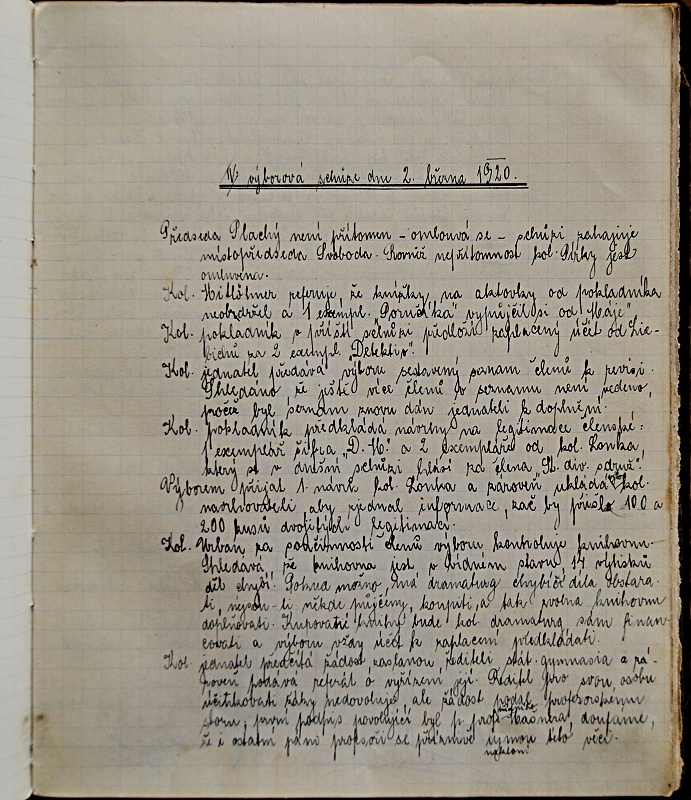 IV. výborová schůze dne 2. března 1920.
Předseda Plachý není přítomen – omlouvá se – schůzi zahajuje
místopředseda Svoboda. Rovněž nepřítomnost kol. Pírky jest
omluvena.
Kol. Hitlöhner referuje, že knížky na aktovky od pokladníka
neobdržel a 1 exempl. "Poručíka" vypůjčil si od "Máje".
Kol. pokladník v příští schůzi předloží zaplacený účet od Zie-
za 2 exempl. "Detektiv".
Kol. jednatel předává výboru sestavený seznam členů k revisi.
Shledáno že ještě více členů v seznamu není vedeno,
pročež byl seznam znovu dán jednateli k doplnění.
Kol. pokladník předkládá návrhy na legitimace členské:
1 exemplář šifra "D. H." a 2 exempláře od kol. Lonka,
který se v dnešní schůzi hlásí za člena "St. div. sdruž".
Výborem přijat 1. návrh kol. Lonka a zároveň ukládá se kol.
navrhovateli, aby zjednal informace, zač by přišlo 100 a
200 kusů dvojitých legitimací.
Kol. Urban za součinnosti členů výboru kontroluje knihovnu.
Shledává že knihovna jest v bídném stavu, 14 výtisků
děl chybí. Pokud možno, má dramaturg chybící díla obstara-
ti, nejsou-li někde půjčeny, koupiti, a tak zvolna knihovnu
doplňovati. Kupovati knihy bude kol. dramaturg sám finan-
covati a výboru vždy účet k zaplacení předkládati.
Kol. jednatel předčítá žádost zaslanou řediteli stát. gymnasia a zá-
roveň podává referát o vyřízení její. Ředitel pro svou osobu
účinkovati žáky nedovoluje, ale žádost podal profesorskému
sboru, první podpis povolující byl p. prof. Wasnera, doufáme,
že i ostatní páni profesoři se příznivě ujmou této věci.